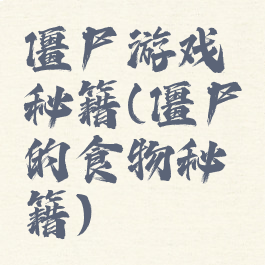 僵尸游戏
秘籍(僵尸
的食物秘
籍)